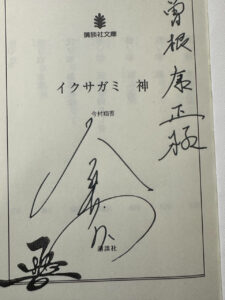 講談社文庫
イクサガミ 神
今村翔吾
講談社
曽根康正様